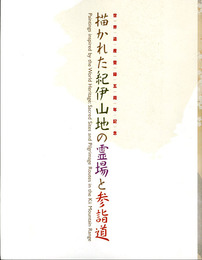 世界遺産登録五周年記念
描かれた紀伊山地の霊場と参詣道
Paintings inspired by the World Heritage Sacred Sites and Pilgrimage Routes in the Kii Mountain Range